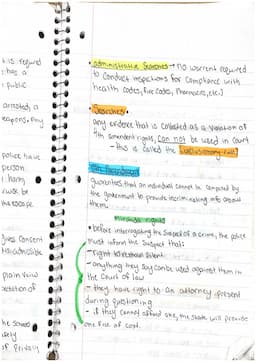 is requird
has a
public
arrested a
weapons. Any
police have
person
harm
must be
the escape.
gives consent
is admissible
plain view
detection of
he second
safety
of Privacy
• administrative searches → no warrent required
to conduct inspections for compliance with
health codes, fire codes, Pharmacies, etc.)
• Searches •
any evidence that is collected as a violation of
4th amendment rights, can not be used in court
- this is called the
guarantees that an individual cannot be compeled by
the government to provide incriminating info about
them.
miranda rights
• before interrogating the suspect of a crime, the police
must inform the suspect that:
- right to remain silent
- anything they say can be used against them in
the court of law
- they have right to an attorney present
during questioning
- if they cannot afford one, the state will provide
one free of cost.